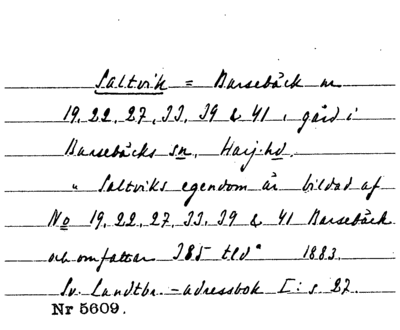 Saltvik = Barsebäck nr
19, 22, 27, 33, 39 & 41, gård i
Barsebäcks sn, Harj. hd.
„ Saltviks egendom är bildad af
No 19, 22, 27, 33, 39 & 41 Barsebäck
och omfattar 385 tld" 1883.
Sv. Landtbr.-adressbok I: s 27.
Nr 5609.